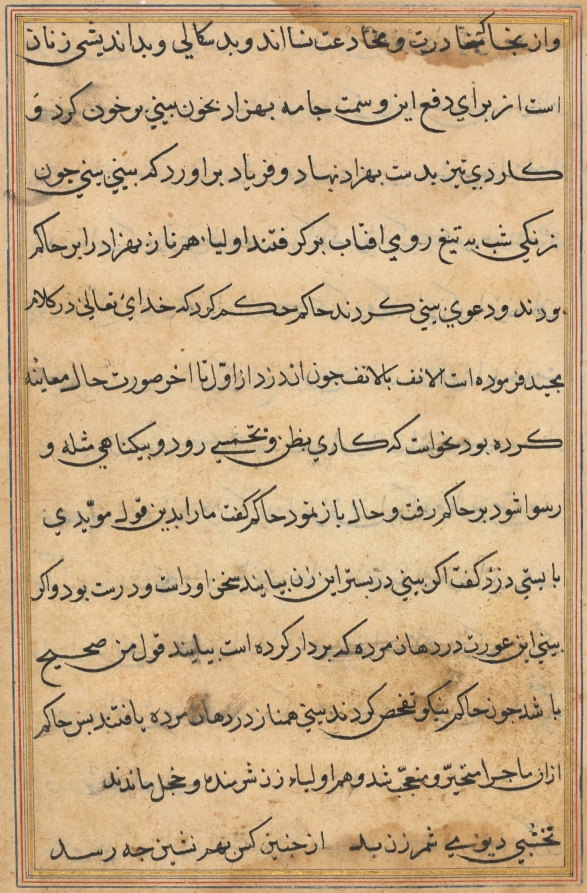 واز بنجا کتحا درت و مخادعت نسا اند و بد سکالی و بد اندیشی زنان
است از برای دفع این وسمت جامه بهزاد بخون بینی پر خون کرد و
کاردی تیز بدست بهزاد نهاد و فریاد براورد که بینی بینی جون
زنکی شب به تیغ روی افتاب بر کرفتند اولیاء هم ناز بهزاد را بر حاکم
بردند و دعوی بینی کردند حاکم حکم کرد که خدای تعالی در کلام
مجید فرموده است الانف بالانف جون ان دزد از اول تا اخر صورت حال معاینه
کرده بود نخواست که کاری بظن و تخمین رود و بیکناهی مثله و
رسوا شود بر حاکم رفت و حال باز نمود حاکم کفت ما را بدین قول مویدی
بایستی دزد کفت اکر بینی در بستر این زن بیابند سخن او راست و درست بود و اکر
بینی این عورت در دهان مرده که بر دار کرده است بیابند قول من صحیح
باشد جون حاکم نیکو تفحص کردند بینی همناز در دهان مرده یافتند بس حاکم
ازان ماجرا متحیر و متعجب شد و هم اولیاء زن شرمنده و خجل ماندند
نخشبی دیوی شمر زن بد از جنین کس بهم نشین جه رسد